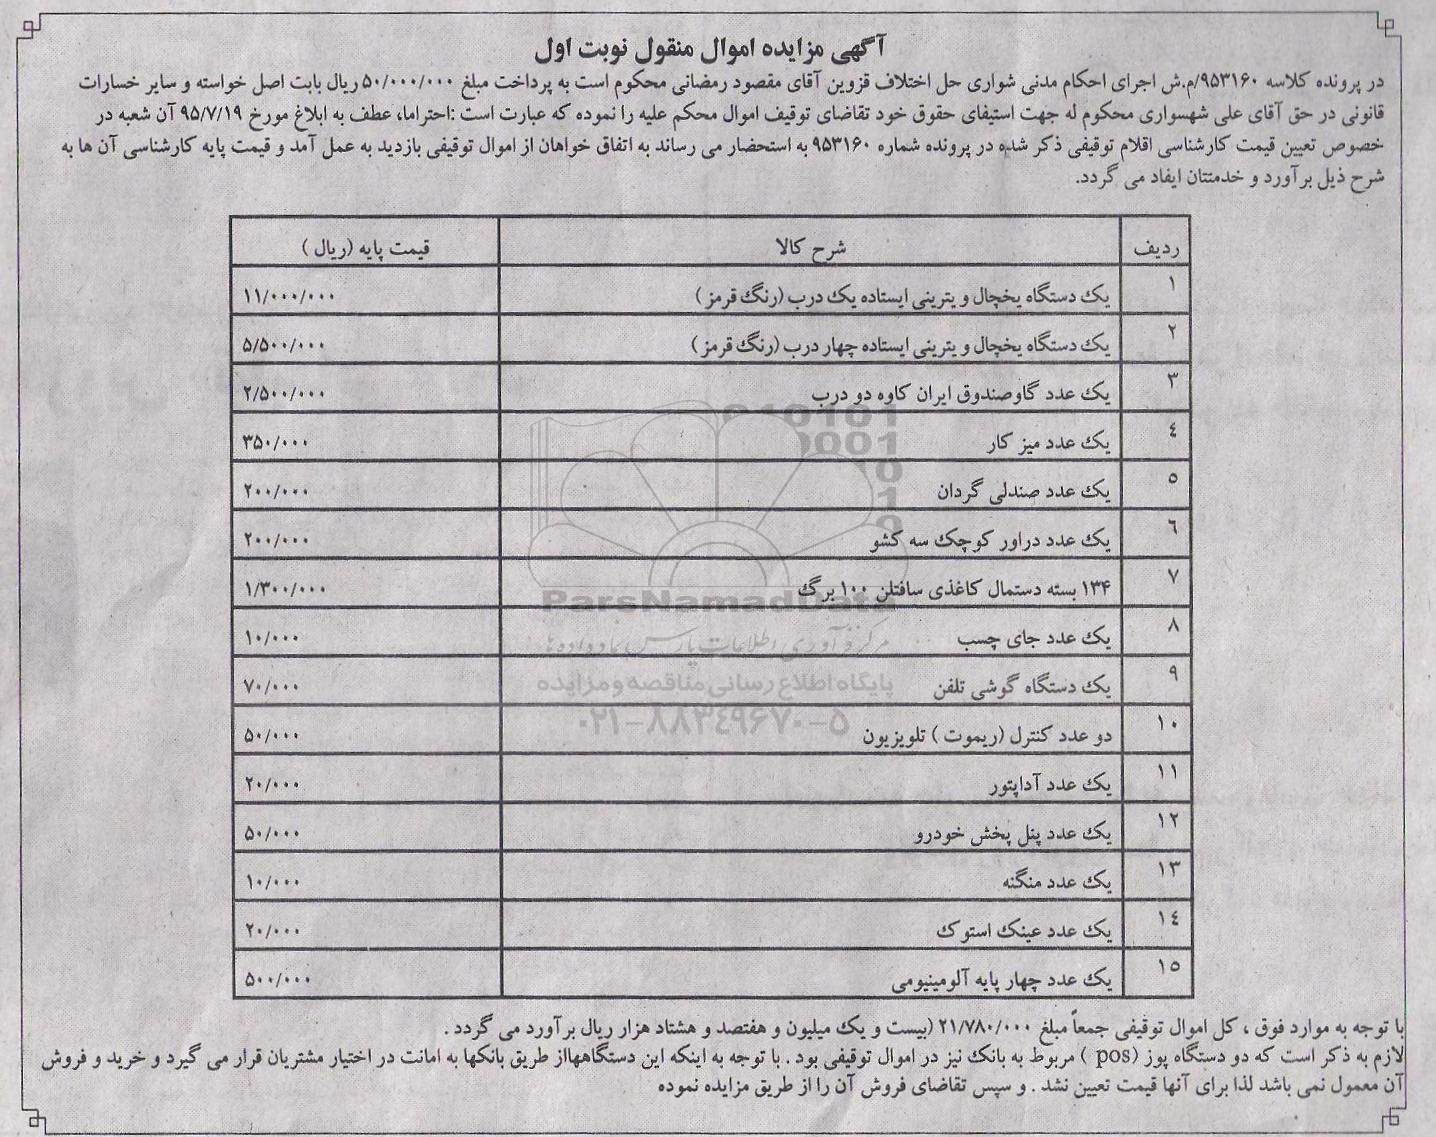 آگهی مزایده اموال منقول نوبت اول
در پرونده کلاسه ۹۵۳۱۶۰/م.ش اجرای احکام مدنی شواری حل اختلاف قزوین آقای مقصود رمضانی محکوم است به پرداخت مبلغ ۵۰/۰۰۰/۰۰۰ ریال بابت اصل خواسته و سایر خسارات
قانونی در حق آقای علی شهسواری محکوم له جهت استیفای حقوق خود تقاضای توقیف اموال محکم علیه را نموده که عبارت است :احتراما، عطف به ابلاغ مورخ ۹۵/۷/۱۹ آن شعبه در
خصوص تعیین قیمت کارشناسی اقلام توقیفی ذکر شده در پرونده شماره ۹۵۳۱۶۰ به استحضار می رساند به اتفاق خواهان از اموال توقیفی بازدید به عمل آمد و قیمت پایه کارشناسی آن ها به
شرح ذیل برآورد و خدمتتان ایفاد می گردد.
ردیف شرح کالا قیمت پایه (ریال )
۱ یک دستگاه یخچال ویترینی ایستاده یک درب (رنگ قرمز ) ۱۱/۰۰۰/۰۰۰
۲ یک دستگاه یخچال ویترینی ایستاده چهار درب (رنگ قرمز ) ۵/۵۰۰/۰۰۰
۳ یک عدد گاوصندوق ایران کاوه دو درب ۲/۵۰۰/۰۰۰
٤ یک عدد میز کار ۳۵۰/۰۰۰
٥ یک عدد صندلی گردان ۲۰۰/۰۰۰
٦ یک عدد دراور کوچک سه کشو ۲۰۰/۰۰۰
۷ ۱۳۴ بسته دستمال کاغذی سافتلن ۱۰۰ برگ ۱/۳۰۰/۰۰۰
۸ یک عدد جای چسب ۱۰/۰۰۰
۹ یک دستگاه گوشی تلفن ۷۰/۰۰۰
۱۰ دو عدد کنترل (ریموت ) تلویزیون ۵۰/۰۰۰
۱۱ یک عدد آداپتور ۲۰/۰۰۰
۱۲ یک عدد پنل پخش خودرو ۵۰/۰۰۰
۱۳ یک عدد منگنه ۱۰/۰۰۰
۱٤ یک عدد عینک استوک ۲۰/۰۰۰
۱٥ یک عدد چهار پایه آلومینیومی ۵۰۰/۰۰۰
ParsNamadData
مرکز فرآوری اطلاعات پارس نماد داده ها
پایگاه اطلاع رسانی مناقصه و مزایده
۰۲۱-۸۸۳٤۹۶۷۰-۵
با توجه به موارد فوق ، کل اموال توقیفی جمعاً مبلغ ۲۱/۷۸۰/۰۰۰ (بیست و یک میلیون و هفتصد و هشتاد هزار ریال برآورد می گردد .
لازم به ذکر است که دو دستگاه پوز (pos ) مربوط به بانک نیز در اموال توقیفی بود . با توجه به اینکه این دستگاههااز طریق بانکها به امانت در اختیار مشتریان قرار می گیرد و خرید و فروش
آن معمول نمی باشد لذا برای آنها قیمت تعیین نشد . و سپس تقاضای فروش آن را از طریق مزایده نموده